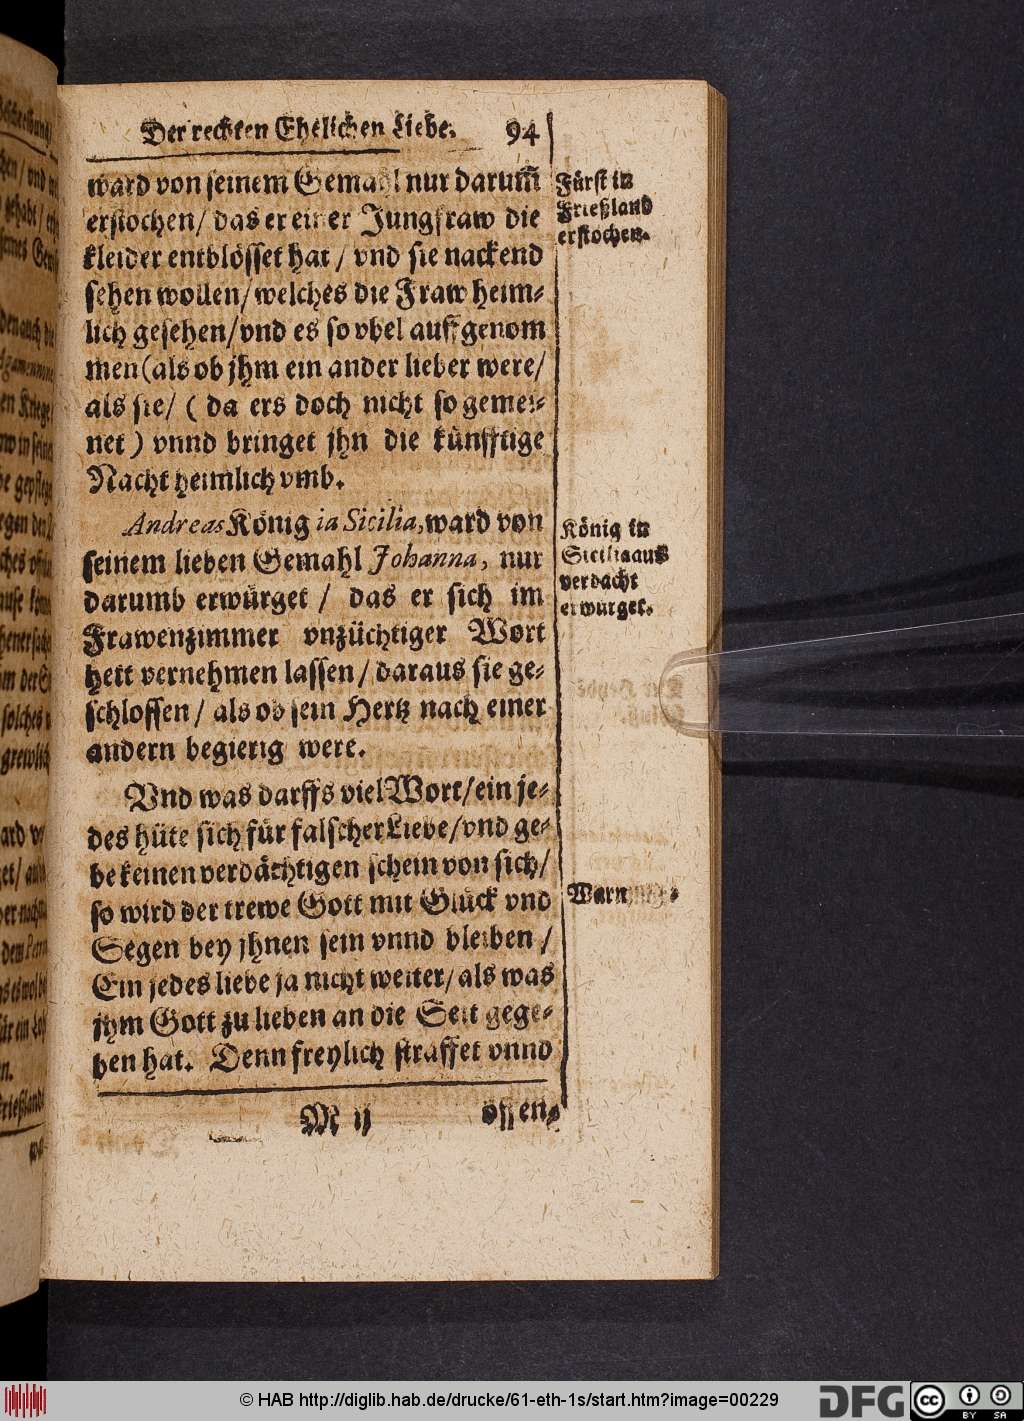 Der rechten Ehelichen Liebe. 94
ward von seinem Gemahl nur darum̃
erstochen/ das er einer Jungfraw die
kleider entblösset hat / vnd sie nackend
sehen wollen/welches die Fraw heim-
lich gesehen/vnd es so vbel auffgenom
men(als ob jhm ein ander lieber were/
als sie/ ( da ers doch nicht so gemei-
net ) vnnd bringet jhn die künfftige
Nacht heimlich vmb.
Fürst in
Frießland
erstochen.
Andreas König in Sicilia, ward von
seinem lieben Gemahl Johanna, nur
darumb erwürget / das er sich im
Frawenzimmer vnzüchtiger Wort
hett vernehmen lassen / daraus sie ge-
schlossen / als ob sein Hertz nach einer
andern begierig were.
König in
Sicilia aus
verdacht
erwürget.
Vnd was darffs viel Wort/ein je-
des hüte sich für falscher Liebe/vnd ge-
be keinen verdächtigen schein von sich/
so wird der trewe Gott mit Glück vnd
Segen bey jhnen sein vnnd bleiben /
Ein jedes liebe ja nicht weiter/als was
jhm Gott zu lieben an die Seit gege-
ben hat. Denn freylich straffet vnnd
Warnung.
M ij offen-
© HAB http://diglib.hab.de/drucke/61-eth-1s/start.htm?image=00229
DFG
cc
BY SA